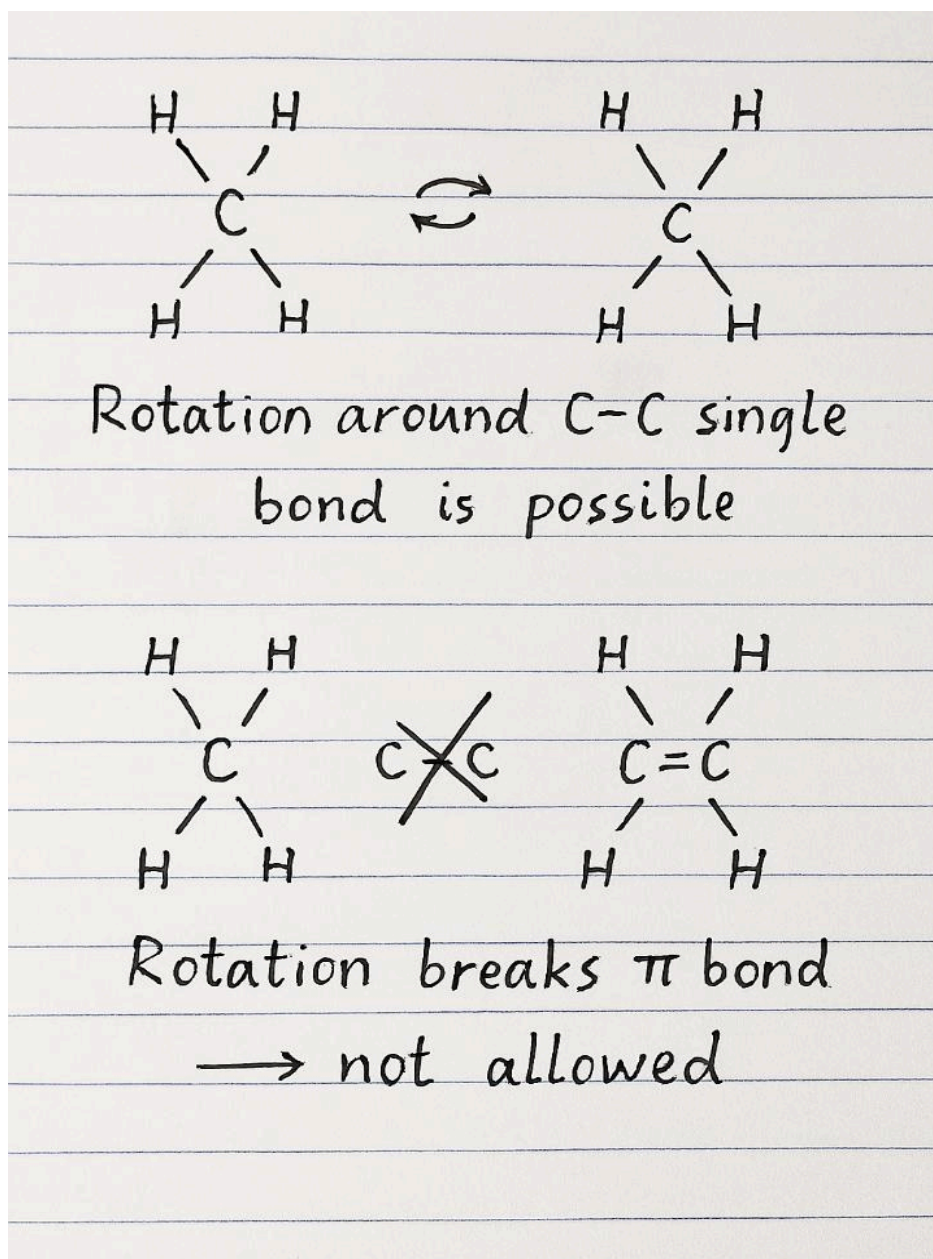 H H H H
C C
H H H H
Rotation around C-C single
bond is possible
H H H H
C C C C=C
H H H H
Rotation breaks π bond
→ not allowed